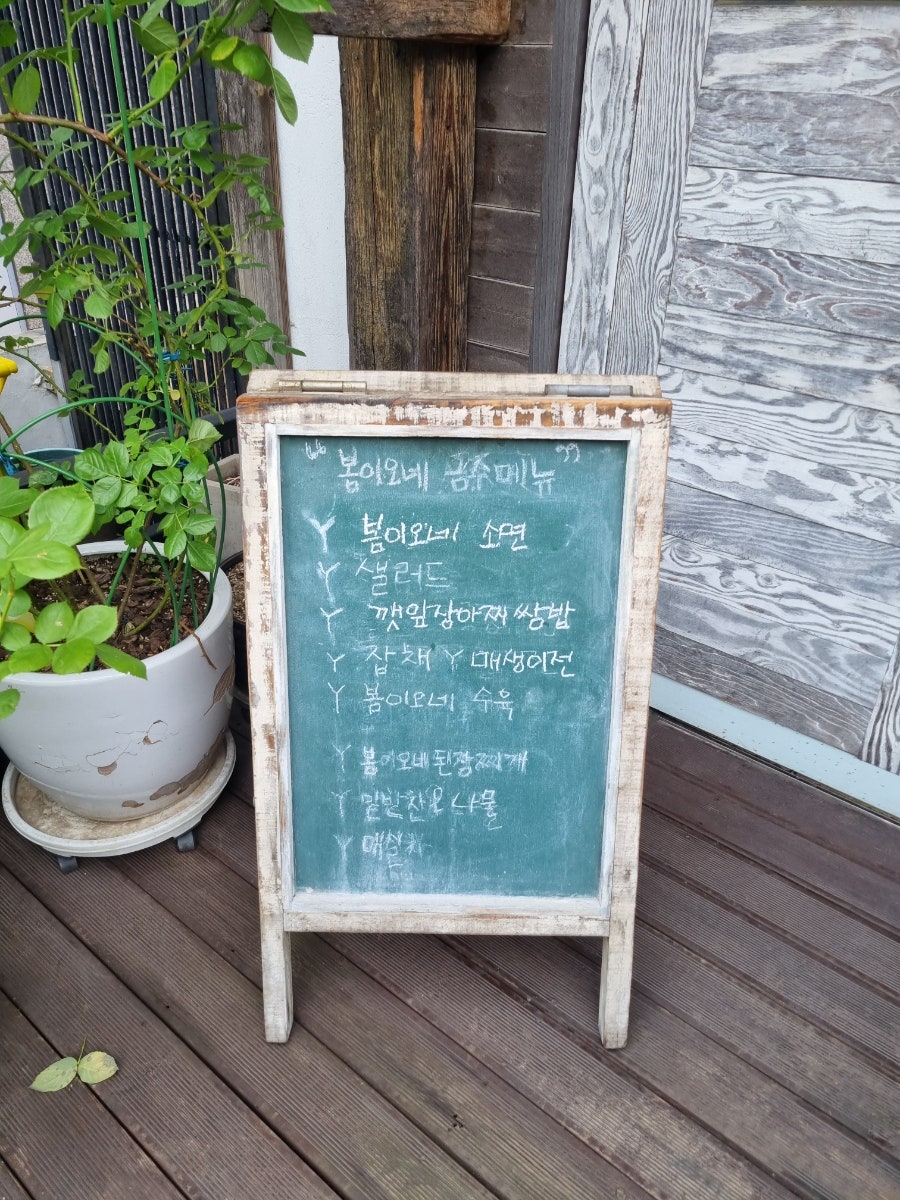 "봄이오네 금주메뉴"
Y 봄이오네 소면
Y 샐러드
Y 깻잎장아찌쌈밥
Y 잡채 Y 매생이전
Y 봄이오네 수육
Y 봄이오네된장찌개
Y 밑반찬은 나물
Y 매실차